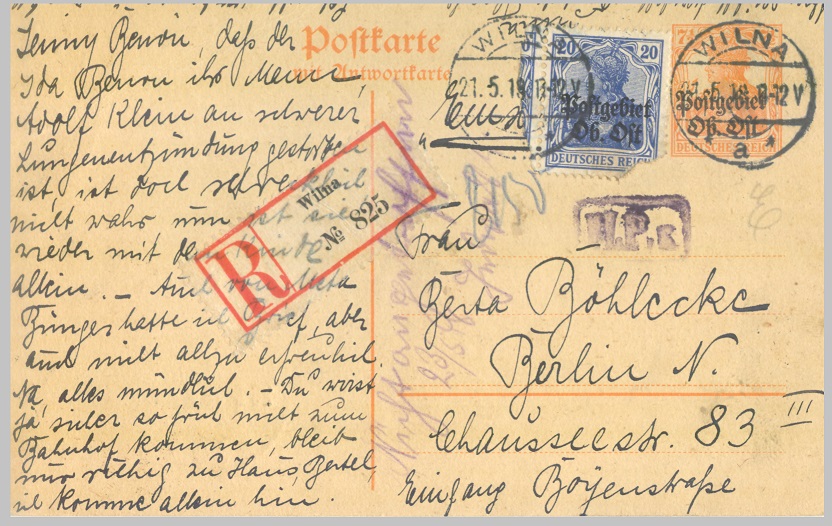 Jenny Benon, daß der
Ida Benon ihr Mann,
Adolf Klein an schwerer
Lungenentzündung gestorben
ist, ist doch schrecklich
nicht wahr nun ist sie
wieder mit dem Kinde
allein. — Auch von Meta
Bünger hatte ich Brief, aber
auch nicht allzu erfreulich.
Na, alles mündlich. — Du wirst
ja sicher so früh nicht zum
Bahnhof kommen, bleib
nur ruhig zu Haus, Bertel
ich komme allein hin.
Postkarte
mit Antwortkarte
WILNA
21.5.18. 11-12 V
20 20
Postgebiet
Ob. Ost
DEUTSCHES REICH
7½
WILNA
21.5.18. 11-12 V
a
Postgebiet
Ob. Ost
DEUTSCHES REICH
R
Wilna
№ 825
Frau
Berta Böhlecke
Berlin N.
Chausseestr. 83 III
Eingang Boyenstraße